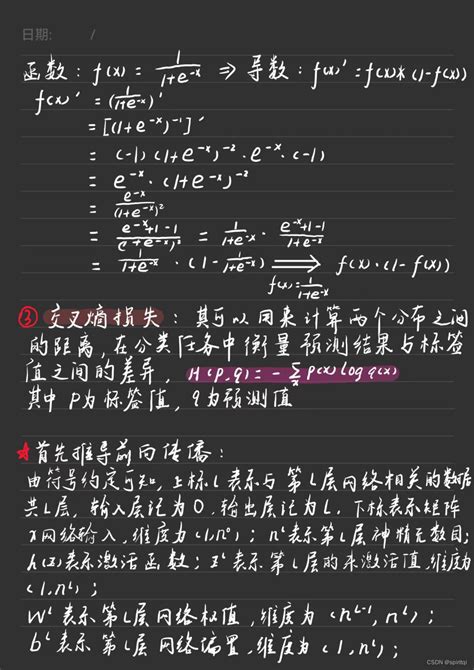 日期: /
函数: f(x) = 1/(1+e^-x) ⇒ 导数: f(x)' = f(x)*(1-f(x))
f(x)' = (1/(1+e^-x))'
= [(1+e^-x)^-1]'
= (-1)(1+e^-x)^-2 · e^-x · (-1)
= e^-x · (1+e^-x)^-2
= e^-x/(1+e^-x)²
= (e^-x+1-1)/(1+e^-x)² = 1/(1+e^-x) · (e^-x+1-1)/(1+e^-x)
= 1/(1+e^-x) · (1 - 1/(1+e^-x)) ⟹ f(x)·(1-f(x))
f(x)=1/(1+e^-x)
③ 交叉熵损失: 其可以用来计算两个分布之间
的距离, 在分类任务中衡量预测结果与标签
值之间的差异, H(p,q) = -∑x p(x) log q(x)
其中 P为标签值, q为预测值
★首先推导前向传播:
由符号约定可知, 上标l表示与第l层网络相关的数据
共L层, 输入层记为0, 输出层记为L, 下标表示矩阵
x网络输入, 维度为(1,n⁰); n^l表示第l层神精元数目;
h(x)表示激活函数; z^l表示第l层的未激活值,维度为
(1,n^l);
W^l 表示第l层网络权值, 维度为 (n^l-1, n^l);
b^l 表示第l层网络偏置, 维度为 (1,n^l);
CSDN @spiritqi